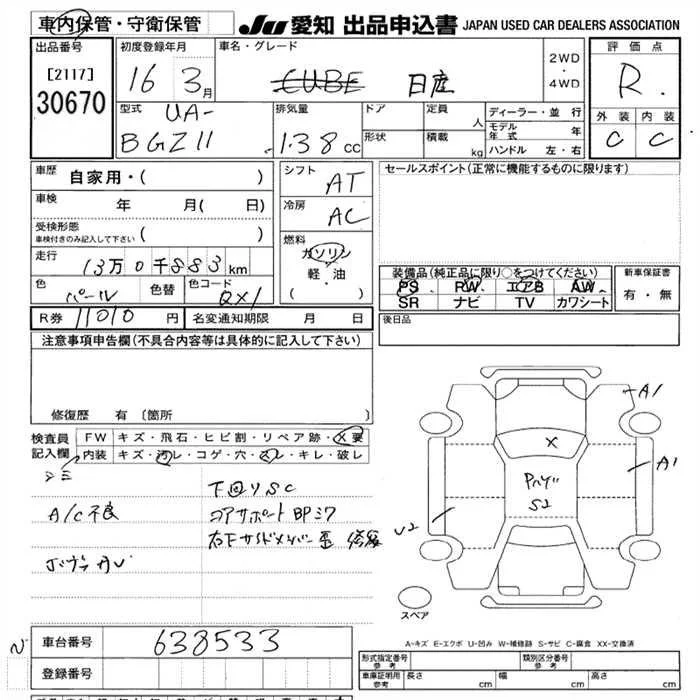 車内保管・守衛保管
JU 愛知 出品申込書 JAPAN USED CAR DEALERS ASSOCIATION
出品番号
[2117]
30670
初度登録年月
16 3月
車名・グレード
CUBE 日産
2WD
・
4WD
評価点
R
外装 内装
C C
型式 UA-
BGZ11
排気量
1.38 cc
ドア
形状
定員 人
積載 kg
ディーラー・並行
モデル年式 年
ハンドル 左・右
車歴 自家用・( )
車検 年 月( 日)
受検形態
車検付きのみ記入して下さい ( )
走行 13万0千883km
色 パール 色替 色コード QX1
シフト AT
冷房 AC
燃料
ガソリン
軽・油
( ・ )
セールスポイント(正常に機能するものに限ります)
装備品(純正品に限り○をつけてください)
PS PW エアB AW
SR ナビ TV カワシート
新車保証書
有・無
R券 11010 円 名変通知期限 月 日
後日品
注意事項申告欄(不具合内容等は具体的に記入して下さい)
修復歴 有 〔箇所 〕
検査員
記入欄
FW キズ・飛石・ヒビ割・リペア跡・X要
内装 キズ・汚レ・コゲ・穴・スレ・キレ・破レ
シミ
A/C不良
下回りSC
コアサポートBPミワ
右下サイドメンバー歪 修復
A1
A1
X
S2
U2
スペア
A-キズ E-エクボ U-凹み W-補修跡 S-サビ C-腐食 XX-交換済
車台番号 638533
登録番号
形式指定番号
参考
類別区分番号
参考
車庫証明用
参考
長さ cm 幅 cm 高さ cm